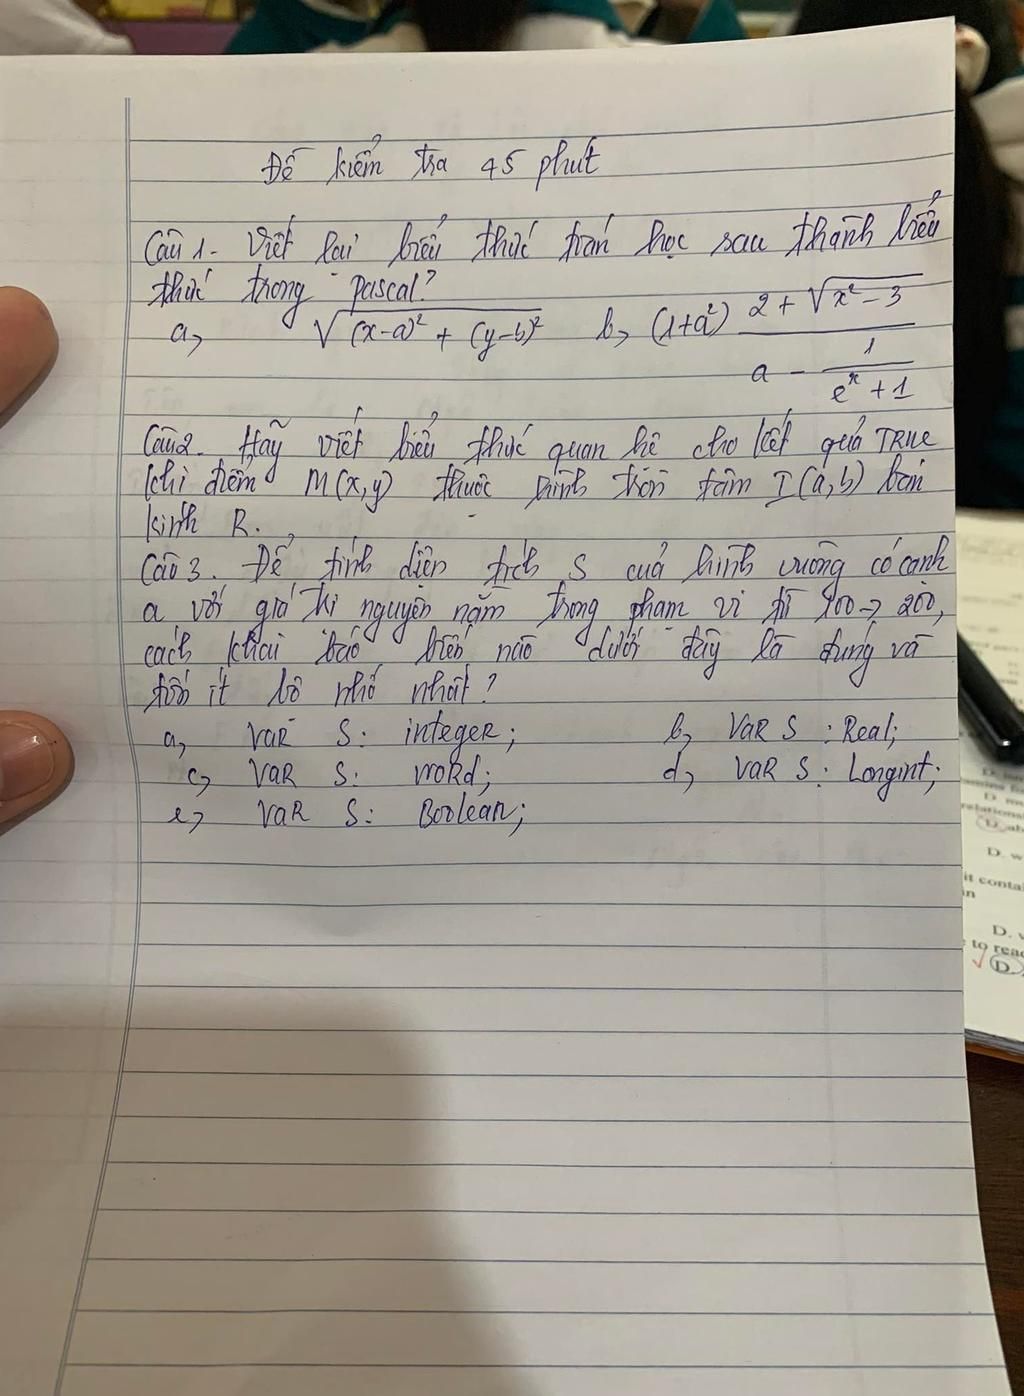 Đề kiểm tra 45 phút
Câu 1. Viết lại biểu thức toán học sau thành biểu
thức trong pascal?
a, √(x-a)² + (y-b)² b, (1+a²) 2 + √x² - 3
a - 1
eˣ + 1
Câu 2. Hãy viết biểu thức quan hệ cho kết quả TRUE
khi điểm M(x,y) thuộc hình tròn tâm I(a,b) bán
kính R.
Câu 3. Để tính diện tích S của hình vuông có cạnh
a với giá trị nguyên nằm trong phạm vi từ 100 → 200,
cách khai báo biến nào dưới đây là đúng và
tốn ít bộ nhớ nhất?
a, VaR S: integeR; b, VaR S : Real;
c, VaR S: woRd; d, VaR S : Longint;
e, VaR S: Boolean;
D. w
it contai
in
D.
to read
D.